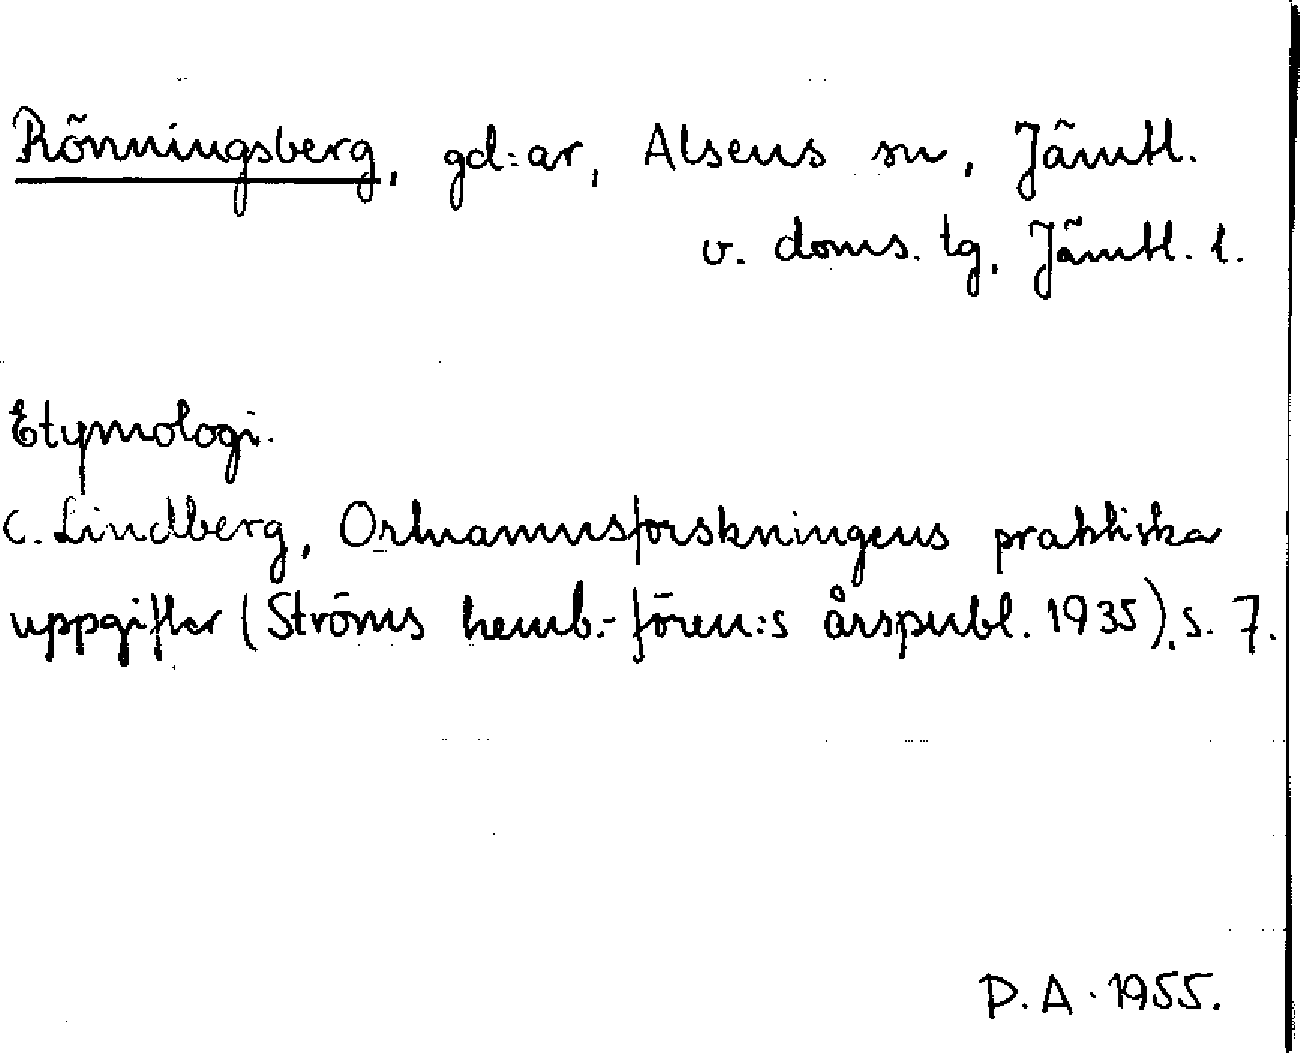 Rönningsberg, gd:ar, Alsens sn, Jämtl.
v. doms. tg, Jämtl. l.
Etymologi.
C. Lindberg, Ortnamnsforskningens praktiska
uppgifter (Ströms hemb.-fören:s årspubl. 1935), s. 7.
P.A. 1955.